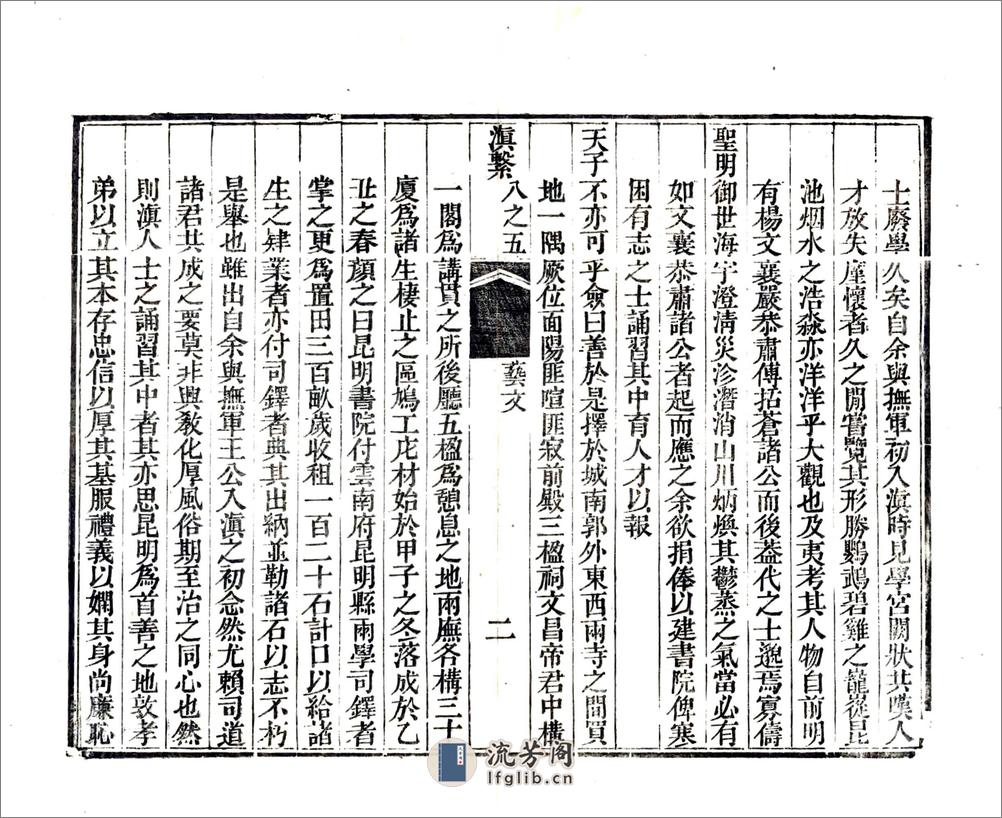 士廢學久矣自余與撫軍初入滇時見學宮闕狀共嘆人
才放失廑懷者久之閒嘗覽其形勝鸚鵡碧雞之巃嵸昆
池烟水之浩淼亦洋洋乎大觀也及夷考其人物自前明
有楊文襄嚴恭肅傅拓蒼諸公而後蓋代之士邈焉寡儔
聖明御世海宇澄淸災沴潛消山川炳煥其鬱蒸之氣當必有
如文襄恭肅諸公者起而應之余欲捐俸以建書院俾寒
困有志之士誦習其中育人才以報
天子不亦可乎僉曰善於是擇於城南郭外東西兩寺之間買
地一隅厥位面陽匪喧匪寂前殿三楹祠文昌帝君中構
滇繫 八之五 藝文 二
一閣爲講貫之所後廳五楹爲憩息之地兩廡各構三十
廈爲諸生棲止之區鳩工庀材始於甲子之冬落成於乙
丑之春顔之曰昆明書院付雲南府昆明縣兩學司鐸者
掌之更爲置田三百畝歲收租一百二十石計口以給諸
生之肄業者亦付司鐸者典其出納並勒諸石以志不朽
是舉也雖出自余與撫軍王公入滇之初念然尤賴司道
諸君共成之要莫非興敎化厚風俗期至治之同心也然
則滇人士之誦習其中者其亦思昆明爲首善之地敦孝
弟以立其本存忠信以厚其基服禮義以嫻其身尚廉恥
流芳阁
lfglib.cn